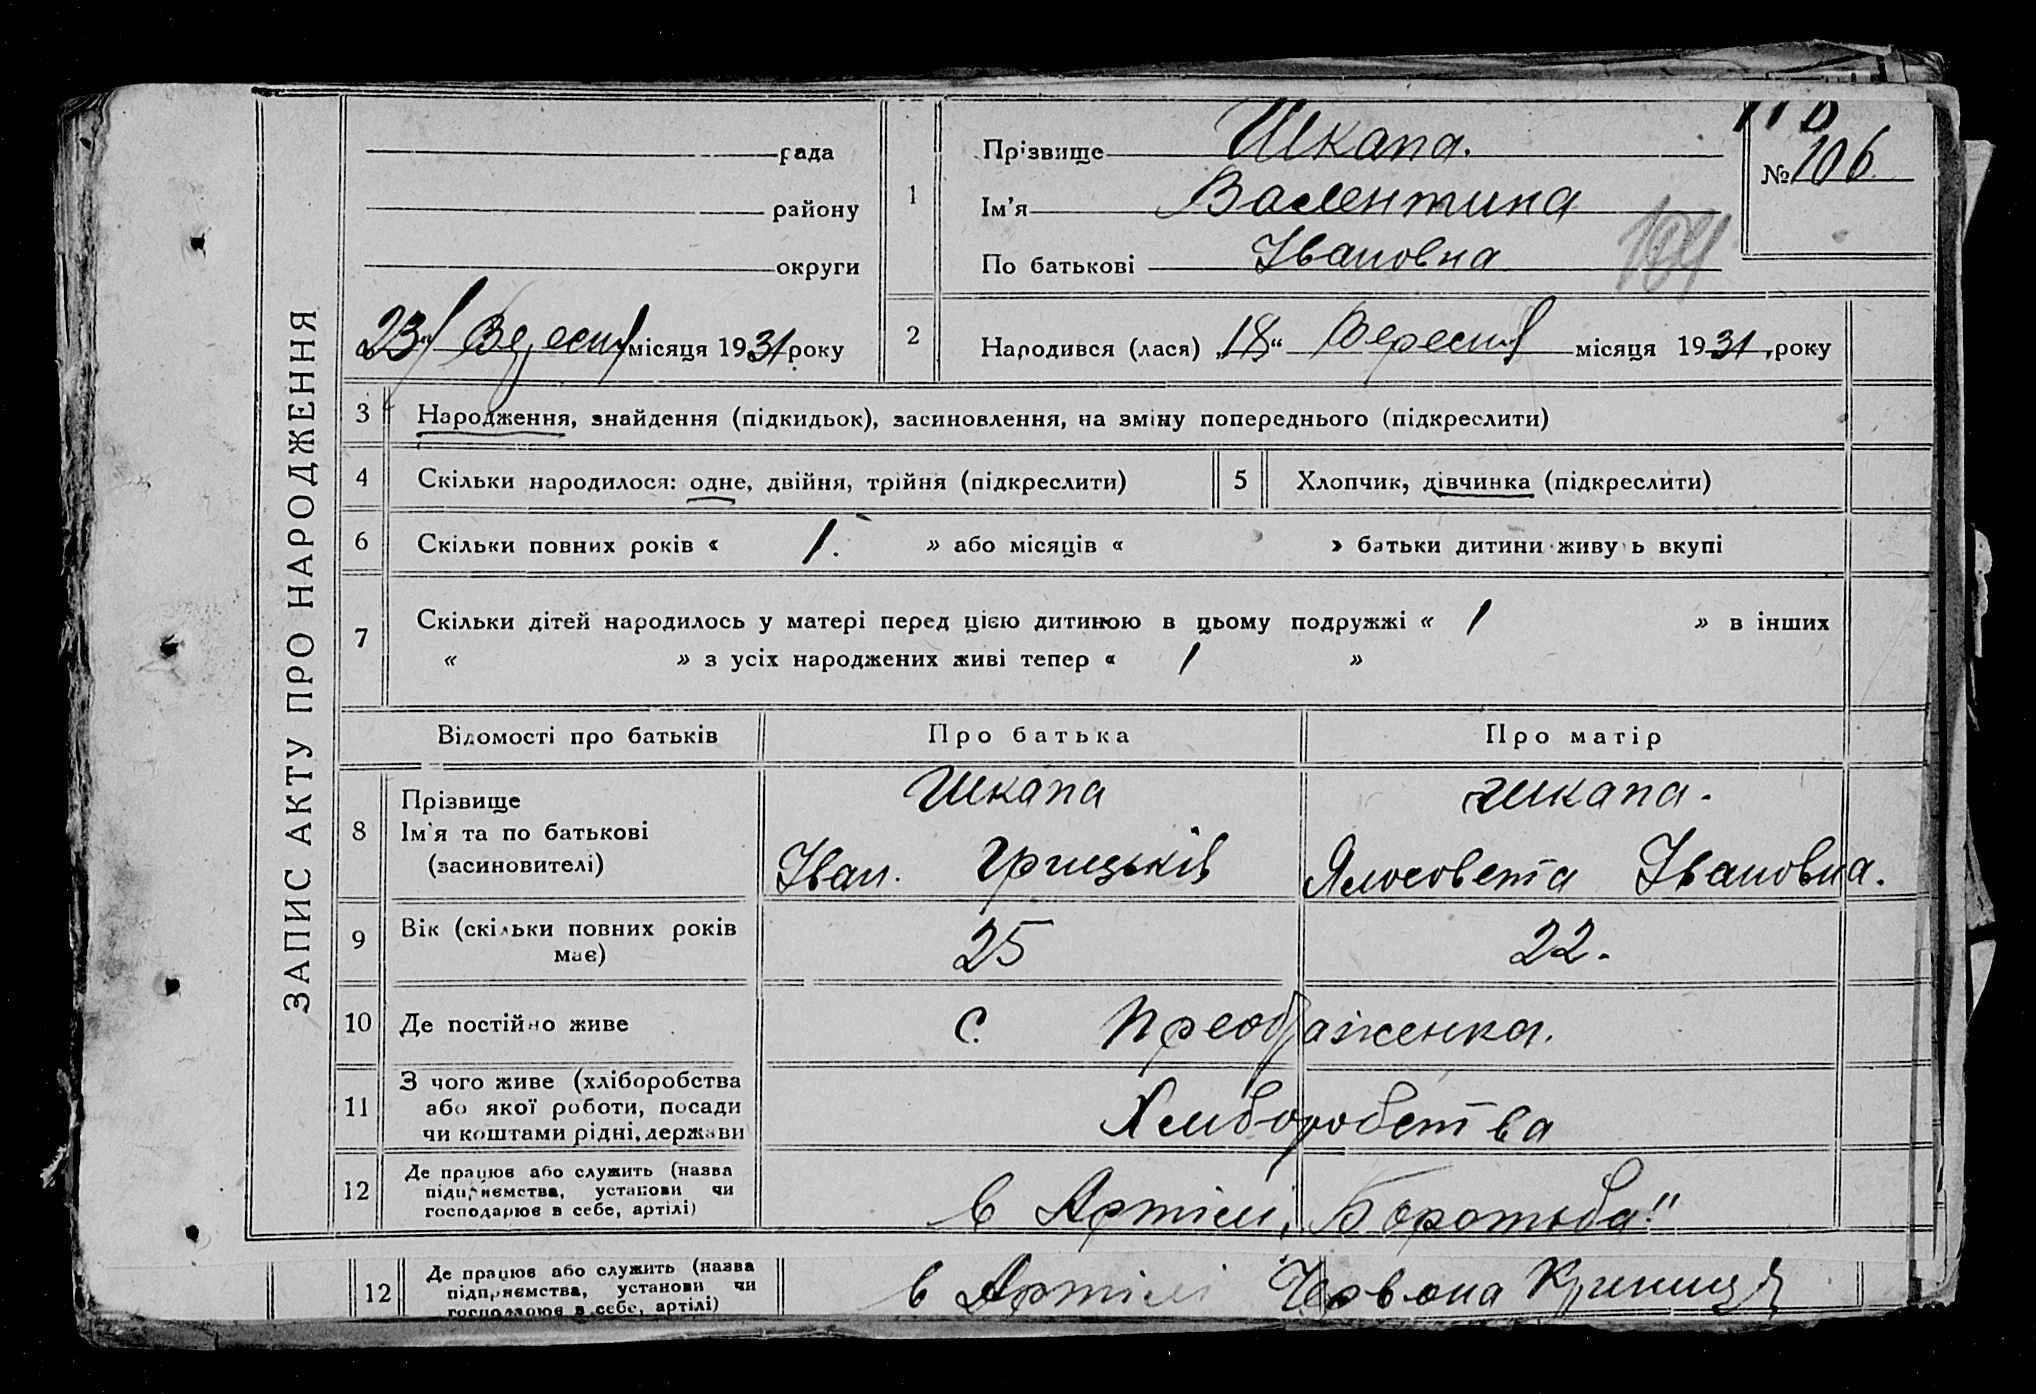 ЗАПИС АКТУ ПРО НАРОДЖЕННЯ
рада
району
округи
„23“ Вересня місяця 1931 року
1
Прізвище Шкапа.
Ім'я Валентина
По батькові Івановна
№ 106
104
2
Народився (лася) „18“ Вересня місяця 1931 року
3 Народження, знайдення (підкидьок), засиновлення, на зміну попереднього (підкреслити)
4 Скільки народилося: одне, двійня, трійня (підкреслити) 5 Хлопчик, дівчинка (підкреслити)
6 Скільки повних років « 1. » або місяців « » батьки дитини живуть вкупі
7 Скільки дітей народилось у матері перед цією дитиною в цьому подружжі « 1 » в інших
« » з усіх народжених живі тепер « 1 »
Відомості про батьків Про батька Про матір
8
Прізвище Шкапа Шкапа.
Ім'я та по батькові
(засиновителі) Іван. Грицьків Ялосовета Івановна.
9
Вік (скільки повних років
має) 25 22.
10 Де постійно живе с. Преображенка.
11
З чого живе (хліборобства
або якої роботи, посади
чи коштами рідні, держави
Хлиборобства
12
Де працює або служить (назва
підприємства, установи чи
господарює в себе, артілі)
в Артілі „Боротьба“
12
Де працює або служить (назва
підприємства, установи чи
господарює в себе, артілі)
в Артілі Червона Криниця